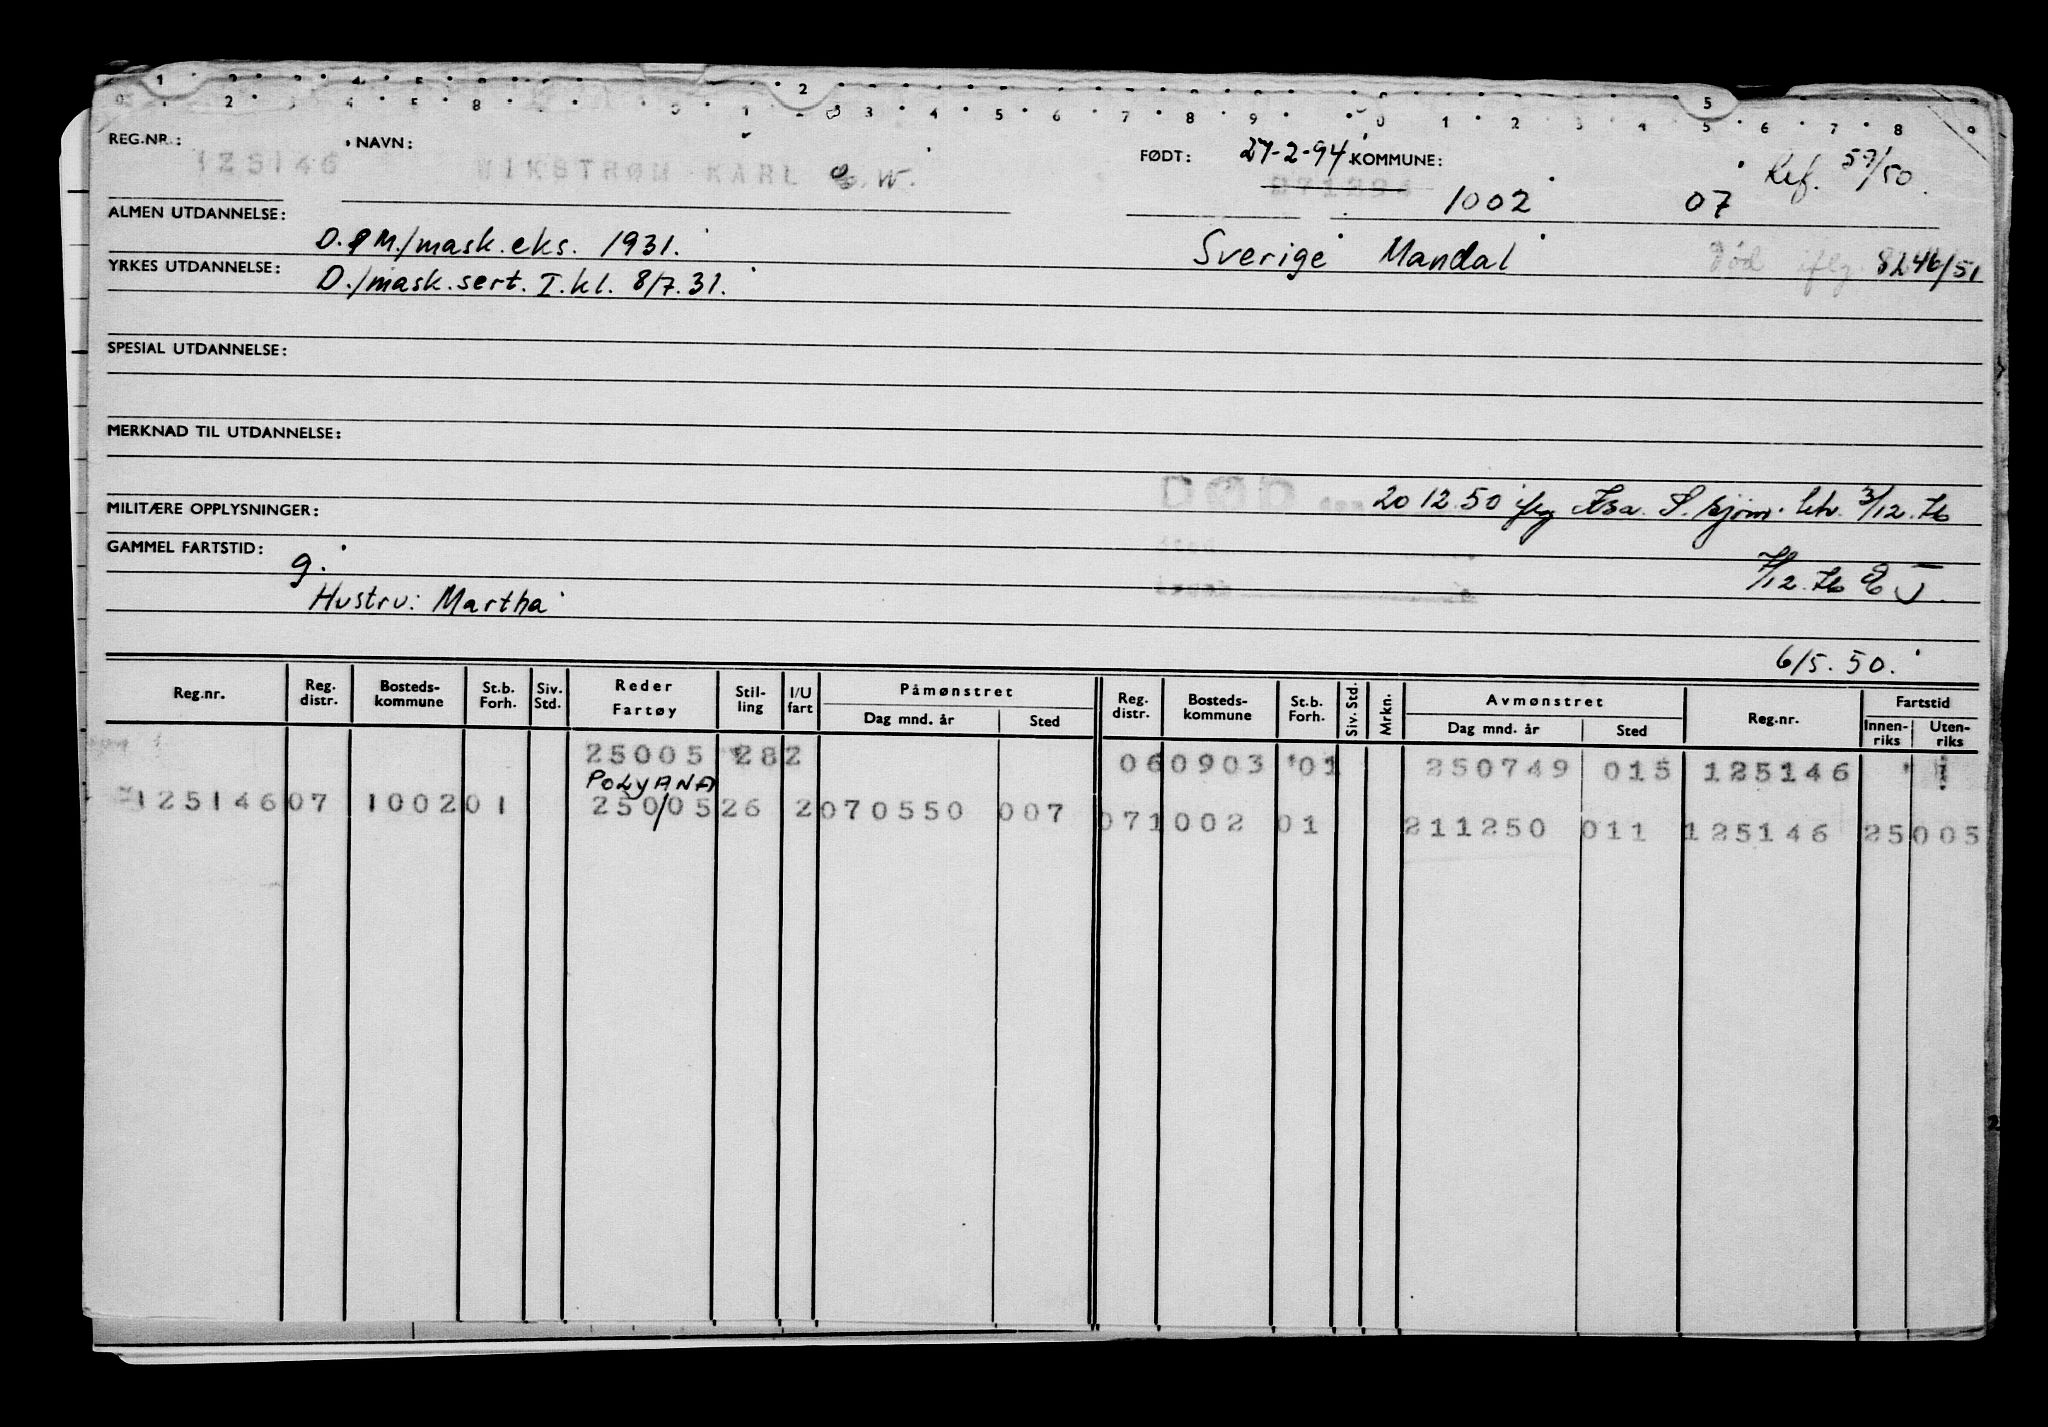 REG.NR.: 125146 NAVN: WIKSTRØM KARL G. W. FØDT: 27-2-94 KOMMUNE: Ref. 57/50.
271294 1002 07
ALMEN UTDANNELSE: D. & M./mask.eks. 1931. Sverige Mandal Død iflg. 8246/51
YRKES UTDANNELSE: D./mask.sert. I.kl. 8/7.31.
SPESIAL UTDANNELSE:
MERKNAD TIL UTDANNELSE:
MILITÆRE OPPLYSNINGER: DØD 20 12.50 iflg S. sjøm.
GAMMEL FARTSTID: g.
Hustru: Martha
6/5.50.
Reg.nr. Reg. distr. Bosteds-kommune St.b. Forh. Siv. Std. Reder Fartøy Stil-ling I/U fart Påmønstret Dag mnd. år Sted Reg. distr. Bosteds-kommune St.b. Forh. Siv. Std. Mrkn. Avmønstret Dag mnd. år Sted Reg.nr. Fartstid Innen-riks Uten-riks
25005 282 060903 01 250749 015 125146
POLYANA
125146 07 1002 01 25005 26 2 070550 007 07 1002 01 211250 011 125146 25005